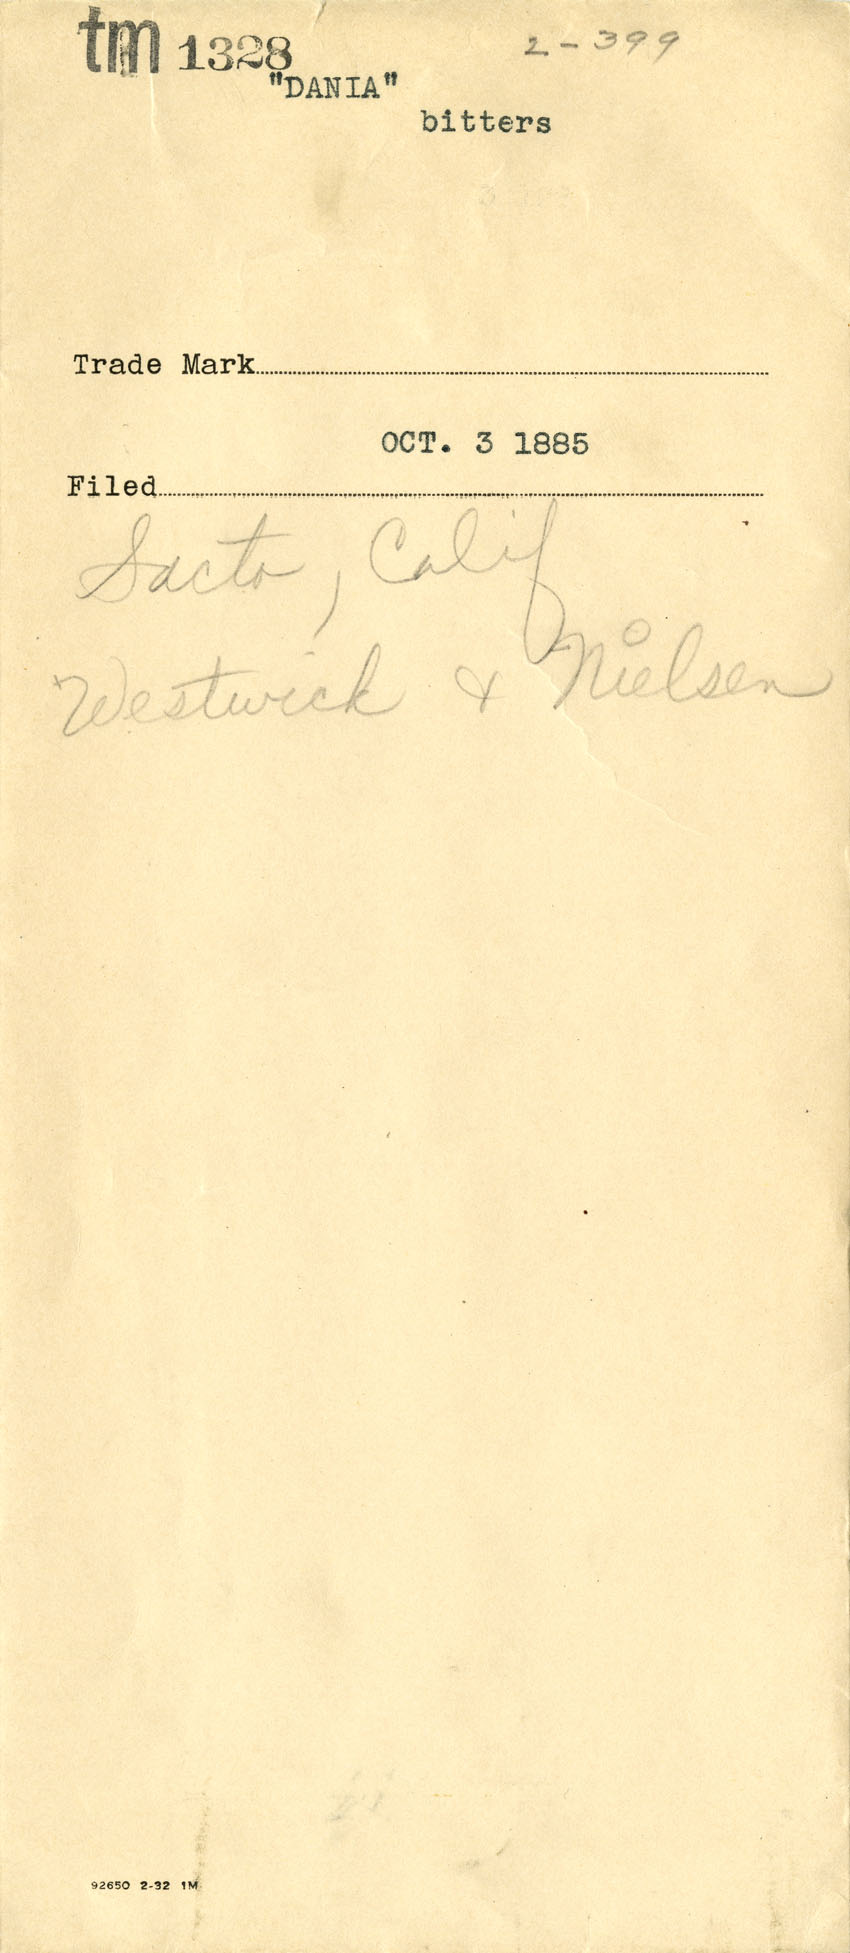 tm 1328
2-399
"DANIA"
bitters
Trade Mark
OCT. 3 1885
Filed
Sacto, Calif
Westwick & Nielsen
92650 2-32 1M